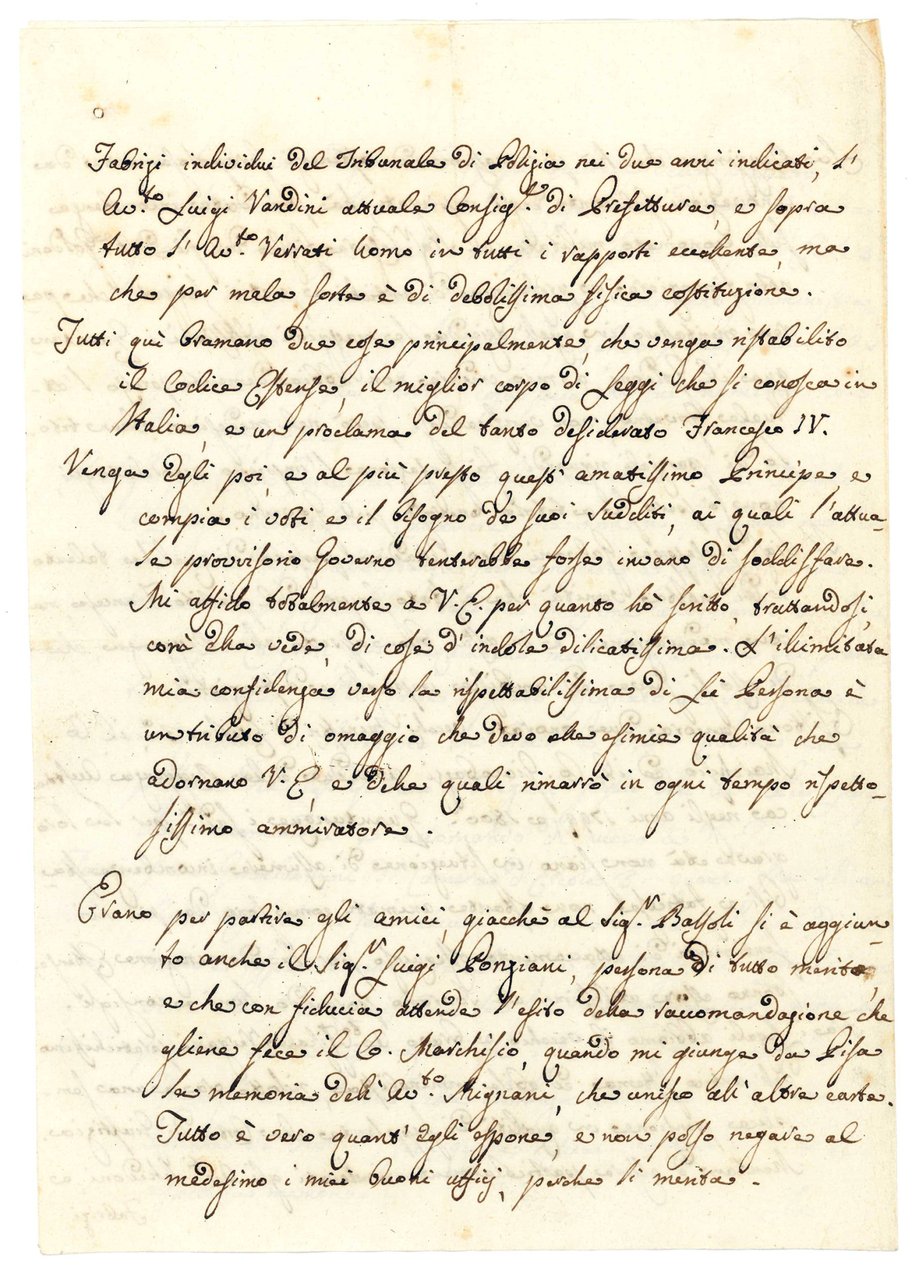 Fabrizi individui del Tribunale di Polizia nei due anni indicati, l'
Av.to Luigi Vandini attuale Consig.re di Prefettura, e sopra
tutto l' Av.to Verrati homo in tutti i rapporti eccellente, ma
che per mala sorte è di debolissima fisica costituzione.
Tutti quì bramano due cose principalmente, che venga ristabilito
il Codice Estense, il miglior corpo di Leggi che si conosca in
Italia, e un proclama del tanto desiderato Francesco IV.
Venga Egli poi, e al più presto quest' amatissimo Principe, e
compia i voti e il bisogno de suoi sudditi, ai quali l'attua-
le provvisorio Governo tenterebbe forse invano di soddisfare.
Mi affido totalmente a V. E. per quanto hò scritto, trattandosi,
com'Ella vede, di cose d'indole dilicatissima. L'illimitata
mia confidenza verso la rispettabilissima di Lei Persona è
un tributo di omaggio che devo alle esimie qualità che
adornano V. E, e delle quali rimarrò in ogni tempo rispetto-
sissimo ammiratore.
Erano per partire gli amici, giacchè al Sig.r Bassoli si è aggiun-
to anche il Sig.r Luigi Ponziani, persona di tutto merito,
e che con fiducia attende l'esito della raccomandazione che
gliene fece il C. Marchisio, quando mi giunge da Pisa
la memoria dell' Av.to Mignani, che unisco all' altre carte.
Tutto è vero quant' Egli espone, e non posso negare al
medesimo i miei buoni uffizj, perche li merita.